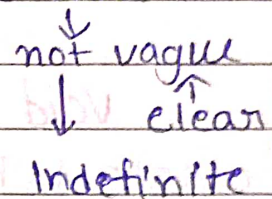 not vague
clear
Indefinite